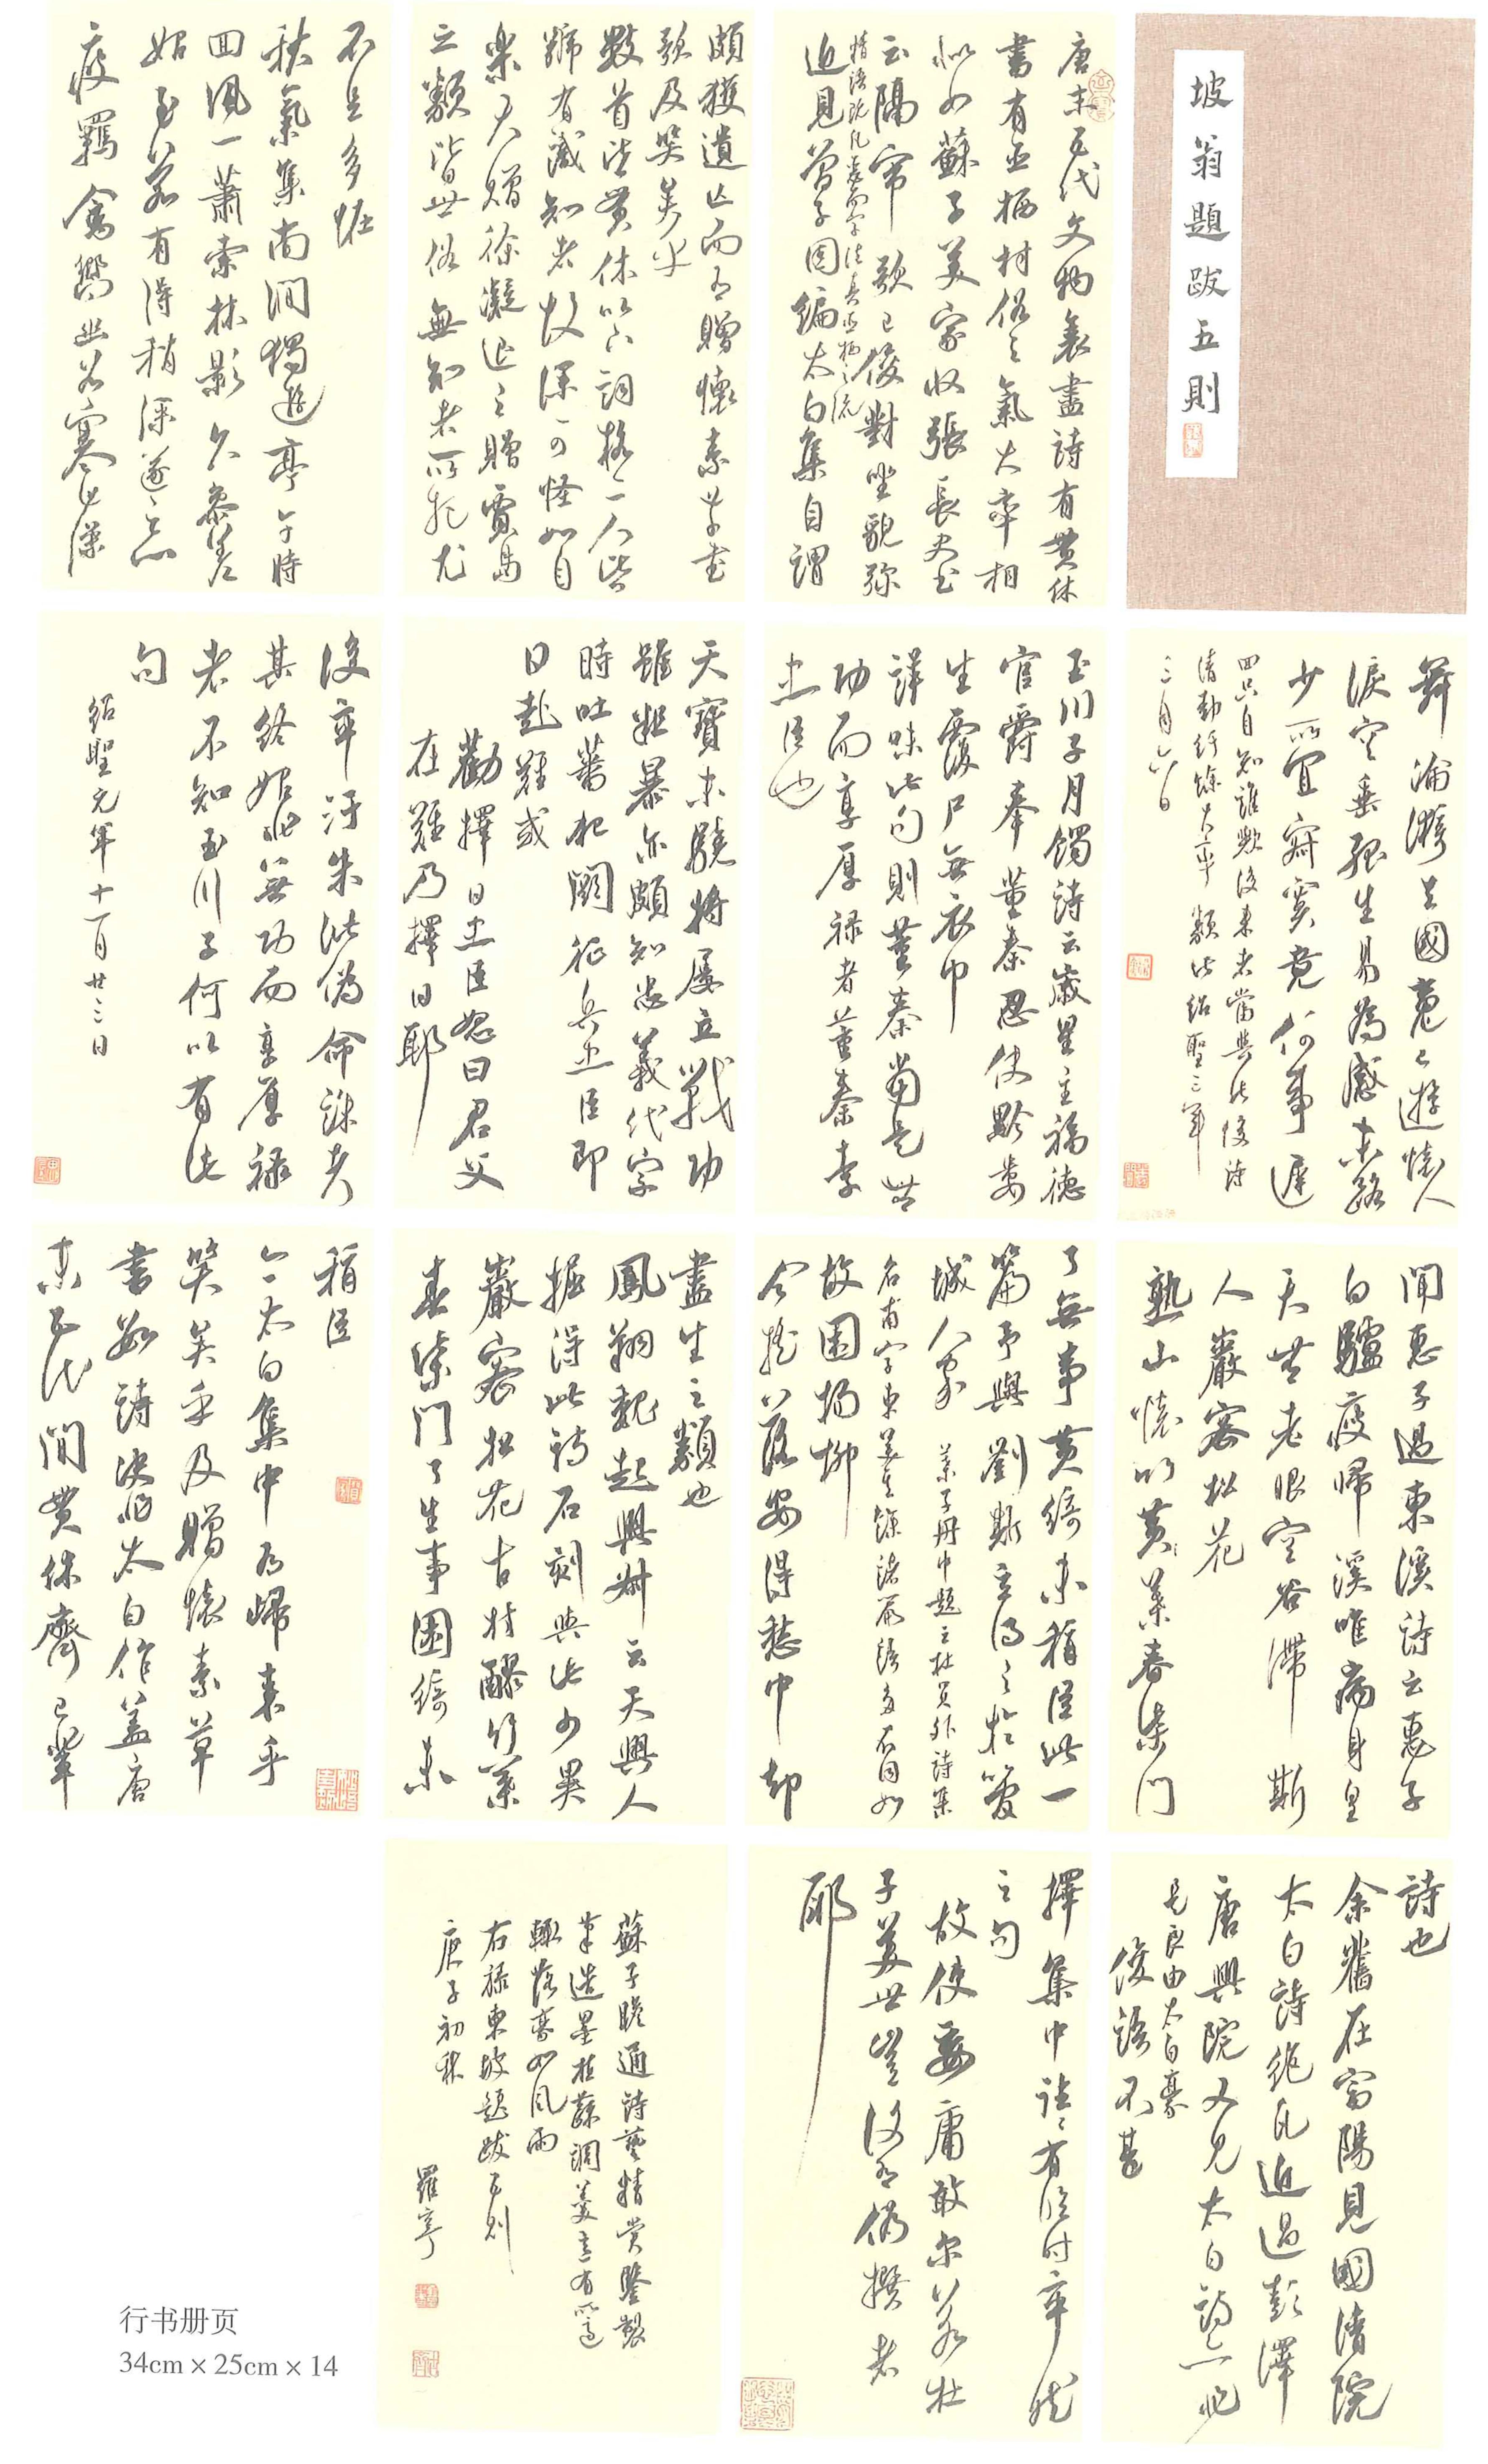 坡翁題跋五則
唐末五代文物衰盡詩有貫休
書有亞栖村俗之氣大率相
似如蘇子美家收張長史書
云隔帘歌已俊對坐貌弥
精語既凡惡而字法真亞栖之流
近見曾子固編太白集自謂
頗獲遺亡而有贈懷素草書
歌及笑矣乎
數首皆貫休以下詞格二人皆
號有識知者故深可怪如白
樂天贈徐凝退之贈賈島
之類皆世俗無知者所託尤
不足多怪
秋氣集南澗獨遊亭午時
回風一蕭索林影久參差
始至若有得稍深遂忘
疲羈禽響幽谷寒藻
舞淪漪去國魂已遊懷人
淚空垂孤生易為感失路
少所宜寂寞竟何事遲
回只自知誰歟後來者當與此
清勁紆餘大率類此紹聖三年
三月六日
玉川子月蝕詩云歲星主福德
官爵奉董秦忍使黔婁
生覆尸無衣巾
詳味此句則董秦當是無
功而享厚禄者董秦李
忠臣也
天寶末驍將屢立戰功
雖粗暴亦頗知忠義代宗
時吐蕃犯闕征兵忠臣即
日赴難或
勸擇日忠臣怒曰君父
在難乃擇日耶
後卒污朱泚偽命誅考
其終始非無功而享厚禄
者不知玉川子何以有此
句
紹聖元年十一月廿三日
聞惠子過東溪詩云惠子
白驢瘦歸溪唯病身皇
天無老眼空谷滯斯
人巖密松花
熟山懷竹葉春柴門
了無事黄綺未稱臣此一
篇予與劉斯立得之於管
城人家
葉子册中題云杜員外詩集
名甫字東美其餘諸篇語多不同如
故園楊柳
今摇落安得愁中却
盡生之類也
鳳翔魏起興叔云天興人
掘得此詩石刻與此少異
巖密松花古村醪竹葉
春柴門了生事園綺未
稱臣
今太白集中有歸來乎
笑矣乎及贈懷素草
書數詩決非太白作蓋唐
末五代間貫休齊己輩
詩也
余舊在富陽見國清院
太白詩絶凡近過彭澤
唐興院又見太白詩亦非
是良由太白豪
俊語不甚
擇集中往往有臨時率然
之句
故使妄庸敢尔若杜
子美世豈復有偽撰者
耶
蘇子瞻通詩藝精賞鑒製
輒落毫如風雨
右録東坡題跋五則
庚子初秋
羅亭
行书册页
34cm×25cm×14